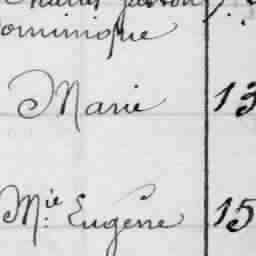 Dominique
Marie 13
M.ie Eugène 15